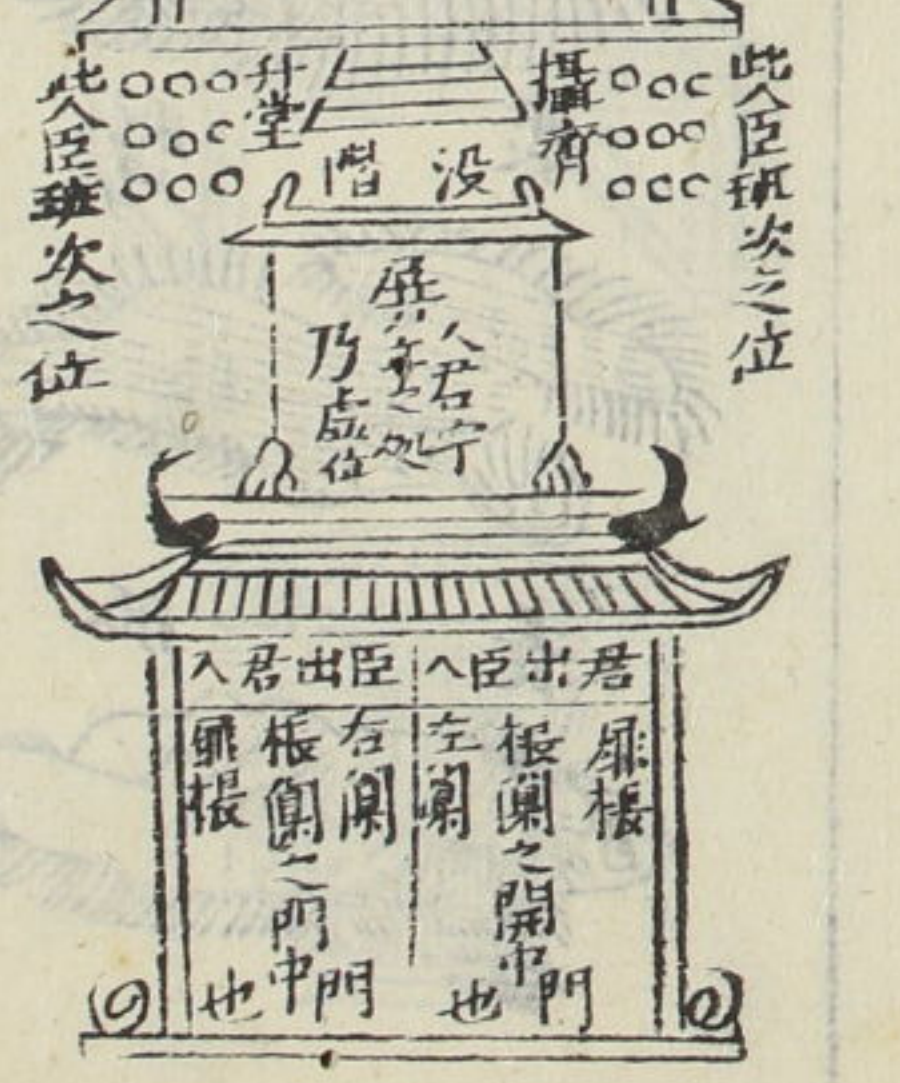 此人臣班次之位
攝齊
升堂
此人臣班次之位
没階
人君宁
立之処
乃虚位
君出臣入
臣出君入
扉棖
棖闑之
中
門
左闑
也
右闑
棖闑之
中
門
扉棖
也